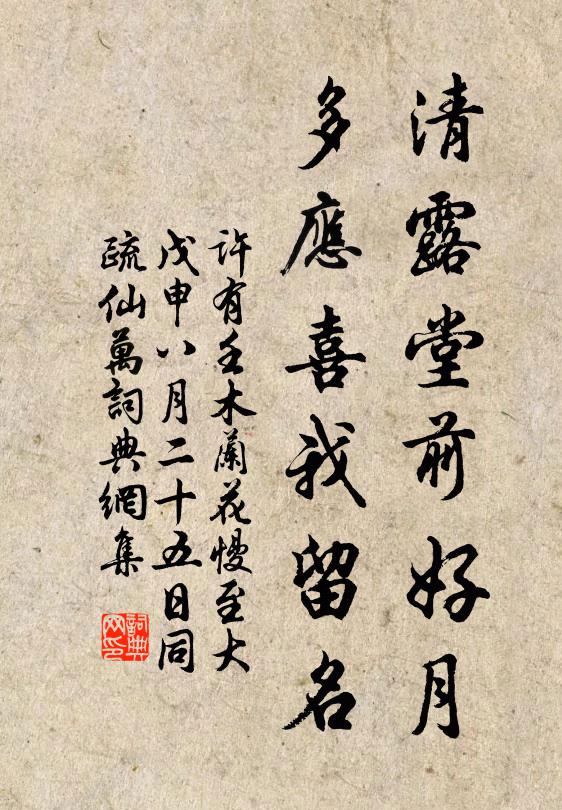 清露堂前好月
多應喜我留名
許有壬木蘭花慢至大
戊申八月二十五日同
疏仙萬詞典網集
詞典
网印